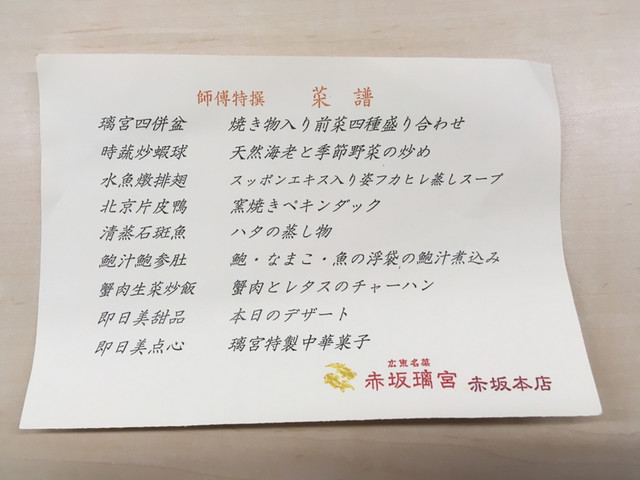 師傅特撰 菜譜
璃宮四併盆 焼き物入り前菜四種盛り合わせ
時蔬炒蝦球 天然海老と季節野菜の炒め
水魚燉排翅 スッポンエキス入り姿フカヒレ蒸しスープ
北京片皮鴨 窯焼きペキンダック
清蒸石斑魚 ハタの蒸し物
鮑汁鮑参肚 鮑・なまこ・魚の浮袋の鮑汁煮込み
蟹肉生菜炒飯 蟹肉とレタスのチャーハン
即日美甜品 本日のデザート
即日美点心 璃宮特製中華菓子
広東名菜
赤坂璃宮 赤坂本店